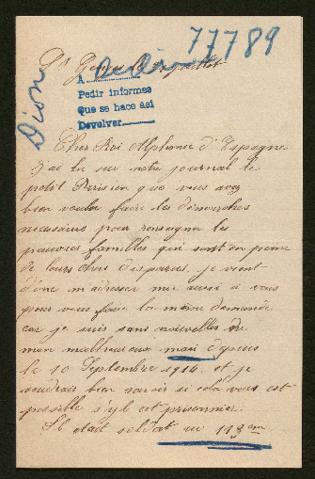 77789
Dion
St Georges le
A
Pedir informes
Que se hace asi
Devolver
Cher Roi Alphonse d'Espagne
J'ai lu sur notre journal le
petit Parisien que vous avez
bien voulu faire les démarches
nécessaires pour renseigner les
pauvres familles qui sont en peine
de leurs chers disparus, je vient
donc m'adresser moi aussi à vous
pour vous faire la même demande
car je suis sans nouvelles de
mon malheureux mari depuis
le 10 Septembre 1914 et je
voudrais bien savoir si cela vous est
possible s'yl est prisonnier.
Il était soldat au 113em